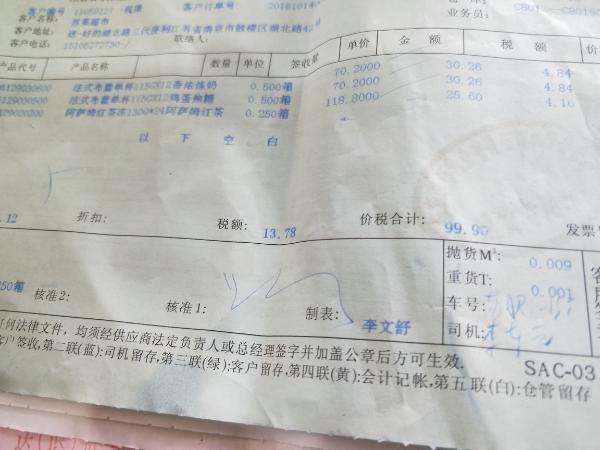 客户编号
客户名称: 苏果超市
客户订单号
客户地址:
客户电话:
联络人:
业务员:
产品代号 产品名称 数量 单位 签收量 单价 金额 税额
法式布蕾单杯115GX12香浓炼奶 0.500箱 70.2000 30.26 4.84
法式布蕾单杯115GX12鸡蛋焦糖 0.500箱 70.2000 30.26 4.84
阿萨姆红茶冻130G*24阿萨姆红茶 0.250箱 118.8000 25.60 4.10
以下空白
.12 折扣: 税额: 13.78 价税合计: 99.90 发票
抛货M³: 0.009
重货T: 0.001
50箱 核准2: 核准1: 制表: 李文舒
车号:
司机:
何法律文件, 均须经供应商法定负责人或总经理签字并加盖公章后方可生效.
客户签收,第二联(蓝):司机留存,第三联(绿):客户留存,第四联(黄):会计记帐,第五联(白):仓管留存
SAC-03